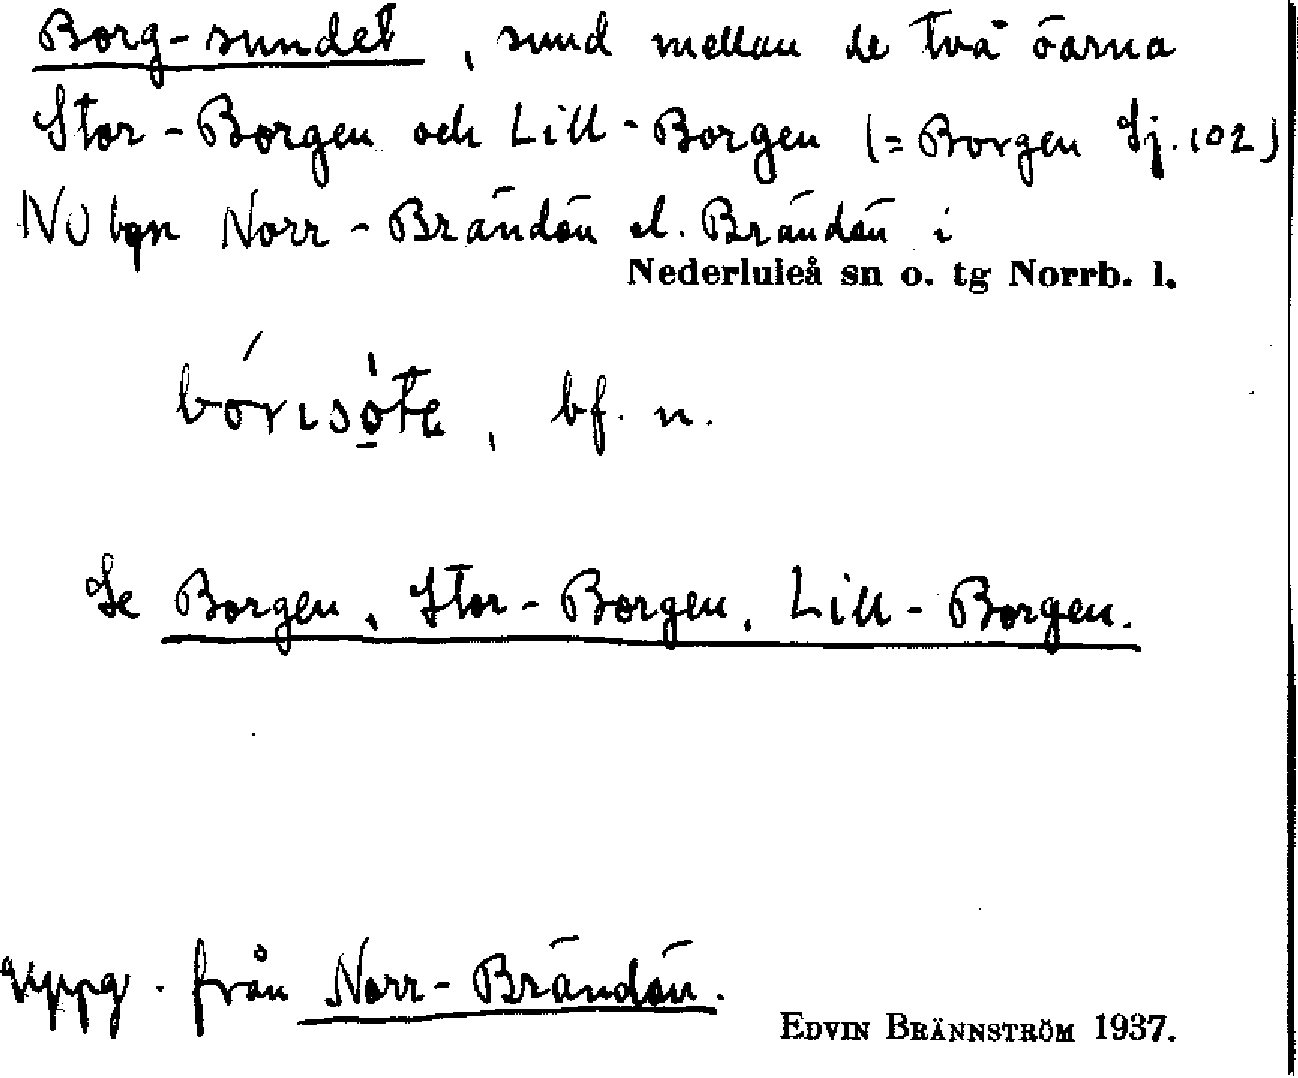 Borg-sundet, sund mellan de två öarna
Stor-Borgen och Lill-Borgen (= Borgen Sj. 102)
NO bgn Norr-Brändön el. Brändön i
Nederluleå sn o. tg Norrb. l.
bf. n.
Se Borgen, Stor-Borgen, Lill-Borgen.
Uppg. från Norr-Brändön.
EDVIN BRÄNNSTRÖM 1937.